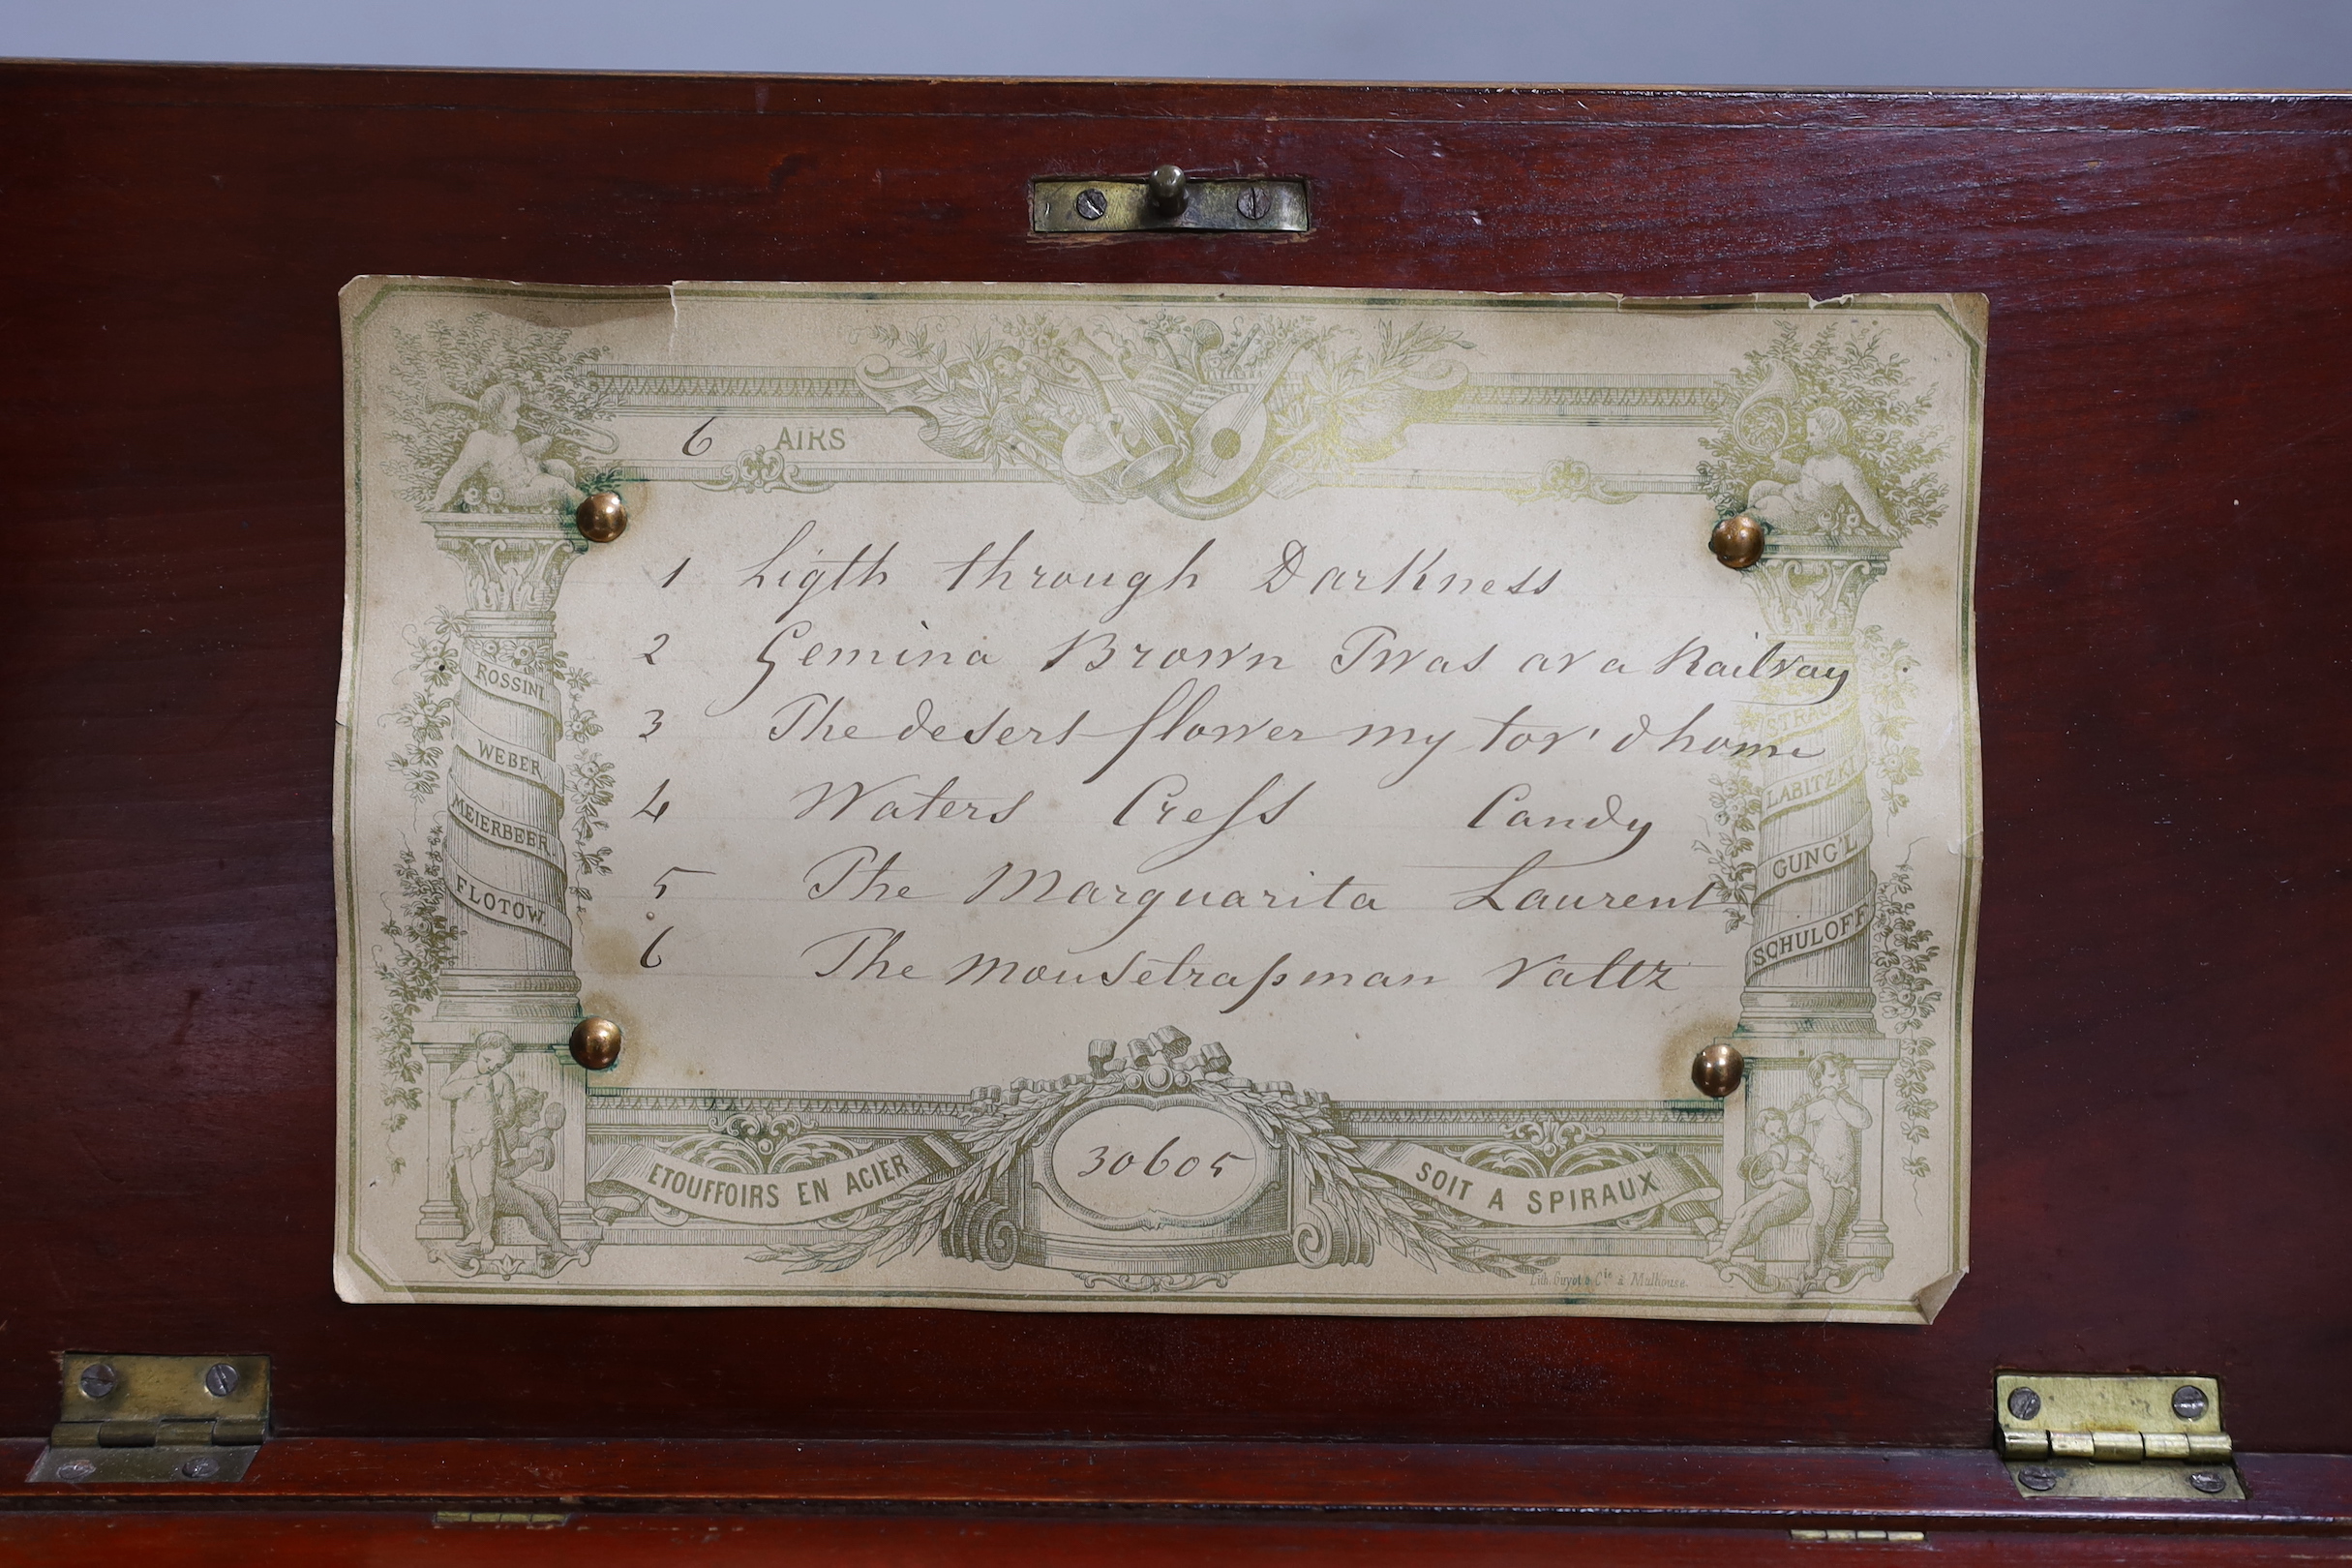 6 AIRS
1 Ligth through Darkness
2 Gemina Brown Twas av a Railvay
3 The desert flower my lov'd home
4 Waters Cress Candy
5 The Marguarita Laurent
6 The mousetrapman valtz
ROSSINI
WEBER
MEIERBEER
FLOTOW
LABITZKI
GUNG'L
SCHULOFF
ETOUFFOIRS EN ACIER
30605
SOIT A SPIRAUX
Lith. Guyot & Cie à Mulhouse.